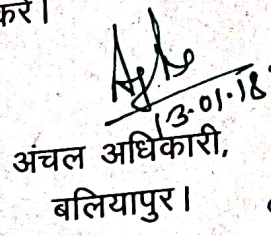 करें।
13.01.18
अंचल अधिकारी,
बलियापुर।